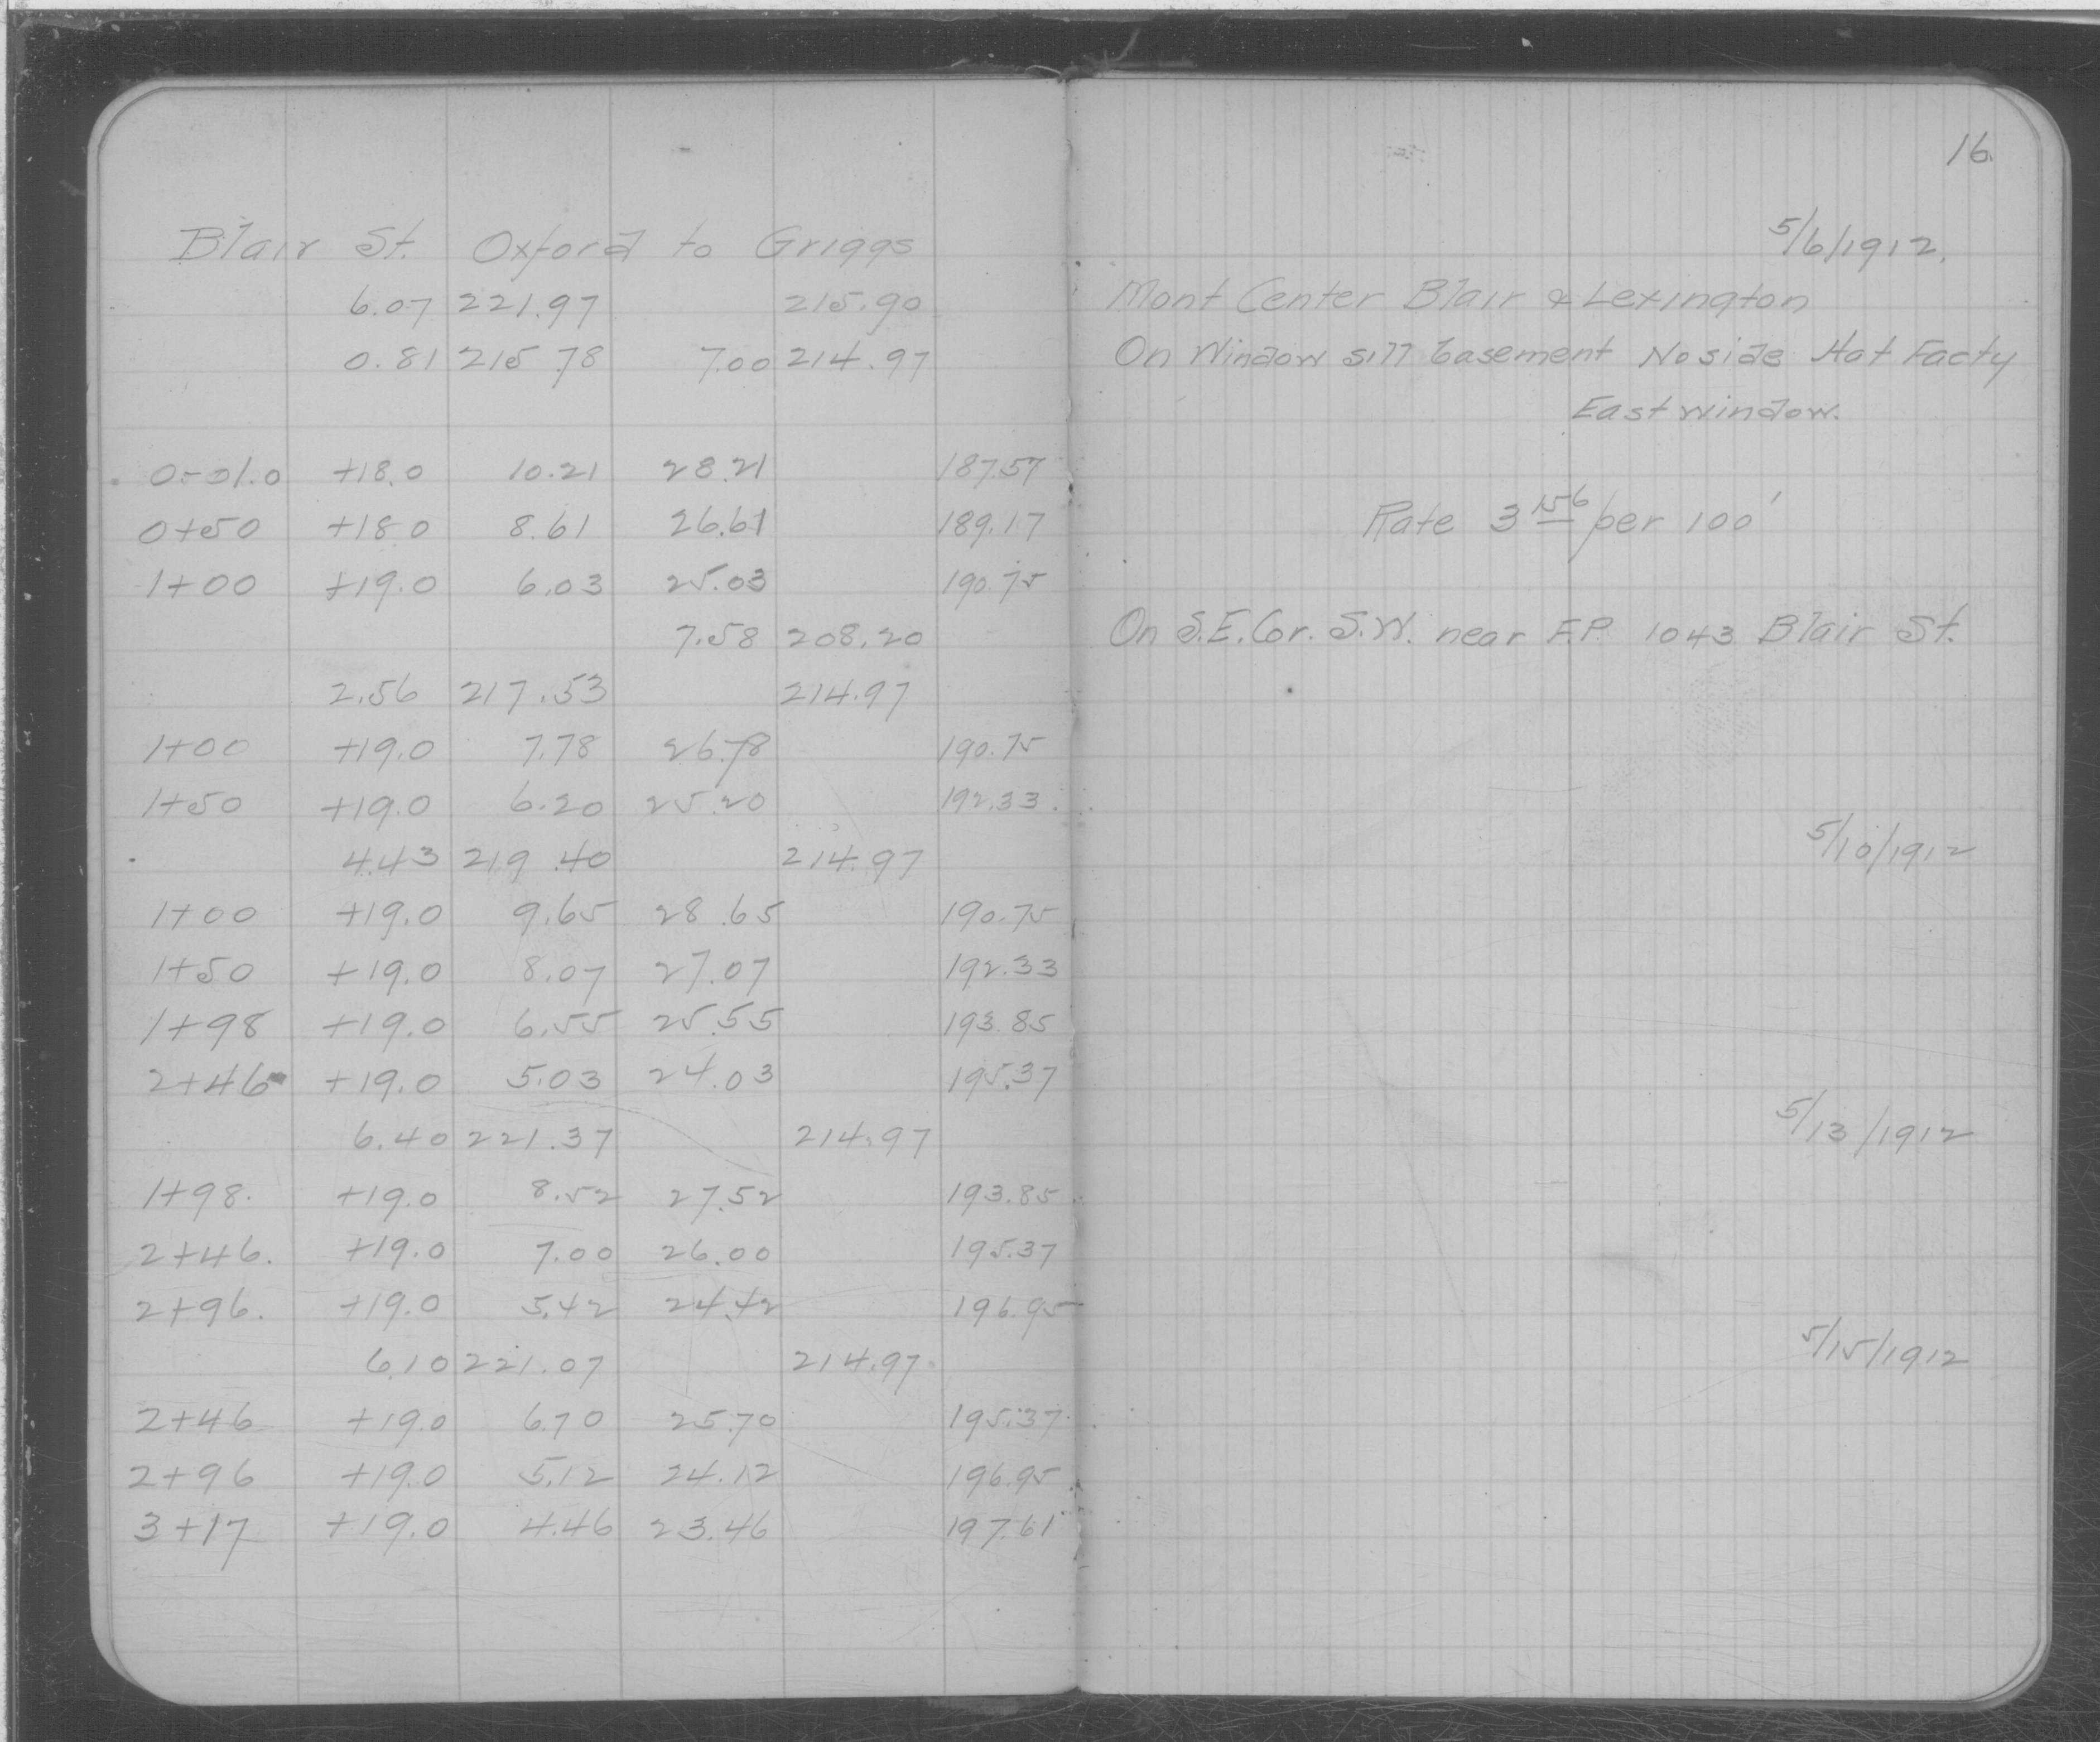 16.
Blair St. Oxford to Griggs 5/6/1912.
6.07 221.97 215.90 Mont Center Blair & Lexington
0.81 215.78 7.00 214.97 On Window sill basement No side Hat Facty
East window.
0-01.0 +18.0 10.21 28.21 187.57
0+50 +18.0 8.61 26.61 189.17 Rate 3 156 per 100'
1+00 +19.0 6.03 25.03 190.75
7.58 208.20 On S.E. Cor. S.W. near F.P. 1043 Blair St.
2.56 217.53 214.97
1+00 +19.0 7.78 26.78 190.75
1+50 +19.0 6.20 25.20 192.33
4.43 219.40 214.97 5/10/1912
1+00 +19.0 9.65 28.65 190.75
1+50 +19.0 8.07 27.07 192.33
1+98 +19.0 6.55 25.55 193.85
2+46 +19.0 5.03 24.03 195.37
6.40 221.37 214.97 5/13/1912
1+98. +19.0 8.52 27.52 193.85
2+46. +19.0 7.00 26.00 195.37
2+96. +19.0 5.42 24.42 196.95
6.10 221.07 214.97 5/15/1912
2+46 +19.0 6.70 25.70 195.37
2+96 +19.0 5.12 24.12 196.95
3+17 +19.0 4.46 23.46 197.61